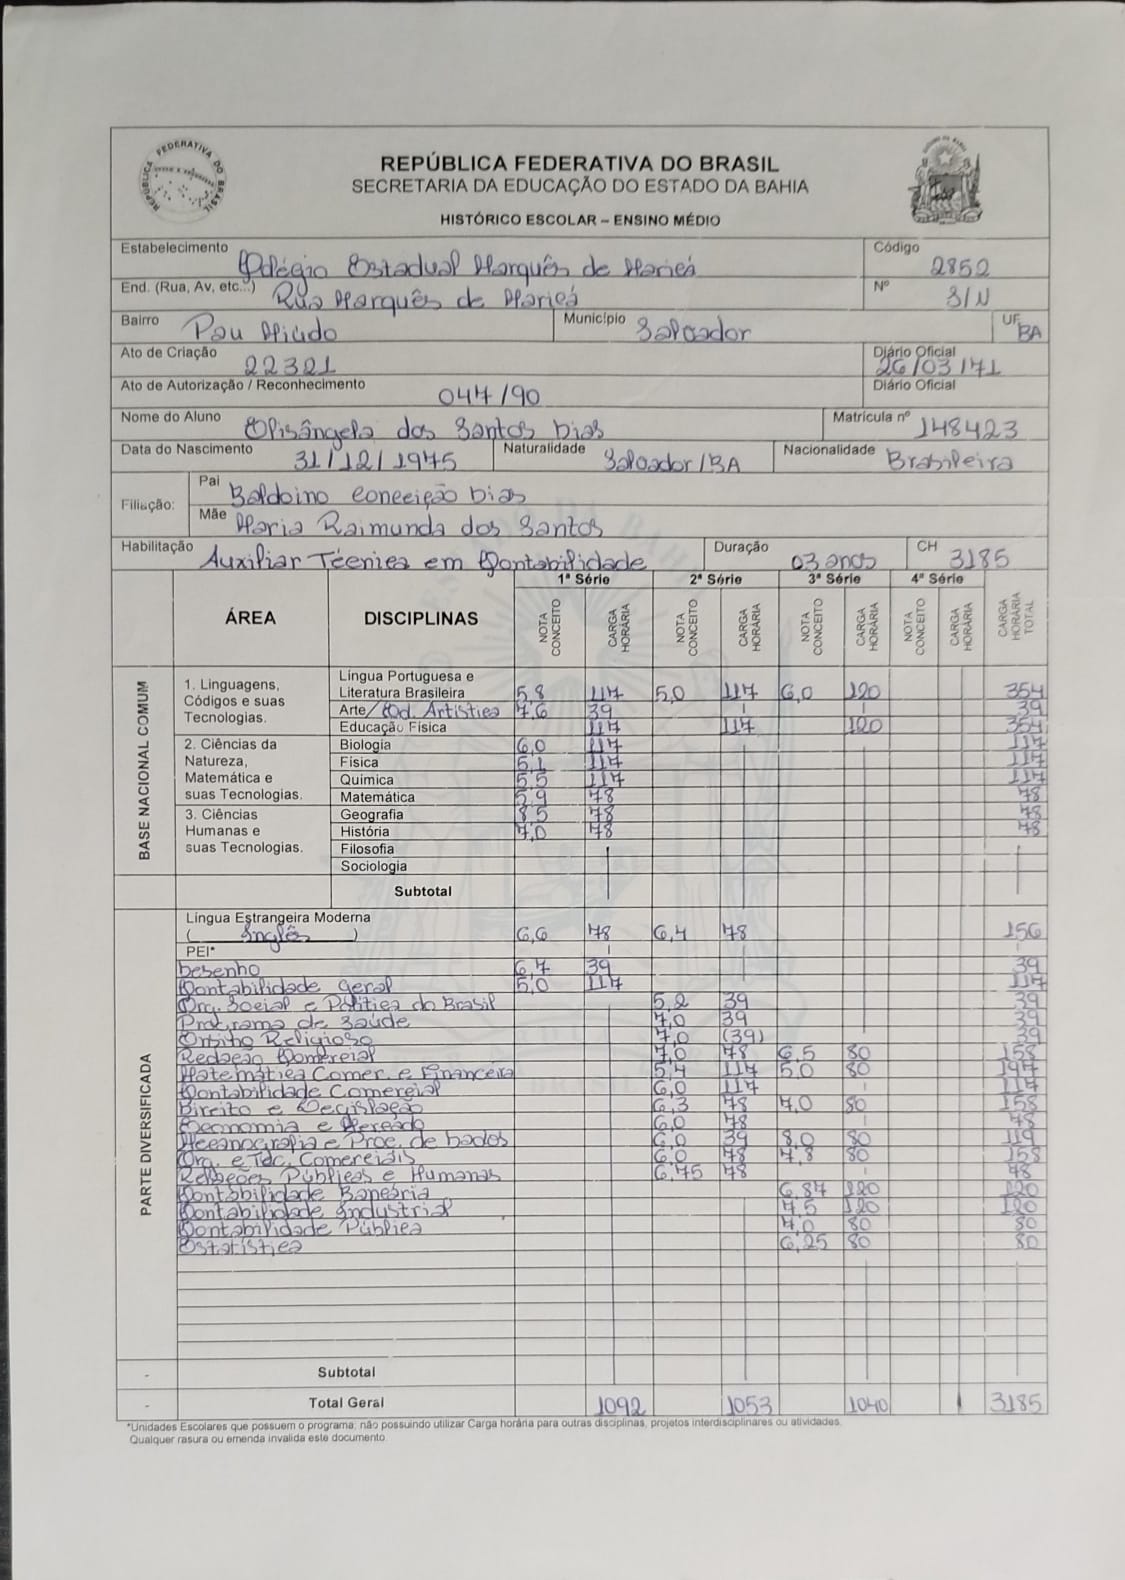 REPÚBLICA FEDERATIVA DO BRASIL
SECRETARIA DA EDUCAÇÃO DO ESTADO DA BAHIA
HISTÓRICO ESCOLAR – ENSINO MÉDIO
REPÚBLICA FEDERATIVA DO BRASIL
Estabelecimento Colégio Estadual Marquês de Maricá Código 2852
End. (Rua, Av, etc...) Rua Marquês de Maricá Nº S/N
Bairro Pau Miúdo Município Salvador UF BA
Ato de Criação 22321 Diário Oficial 26/03/71
Ato de Autorização / Reconhecimento 047/90 Diário Oficial
Nome do Aluno Elisângela dos Santos Dias Matrícula nº 148423
Data do Nascimento 31/12/1975 Naturalidade Salvador/BA Nacionalidade Brasileira
Filiação: Pai Baldoino Conceição Dias
Mãe Maria Raimunda dos Santos
Habilitação Auxiliar Técnico em Contabilidade Duração 03 anos CH 3185
ÁREA DISCIPLINAS 1ª Série 2ª Série 3ª Série 4ª Série
NOTA CONCEITO CARGA HORÁRIA NOTA CONCEITO CARGA HORÁRIA NOTA CONCEITO CARGA HORÁRIA NOTA CONCEITO CARGA HORÁRIA CARGA HORÁRIA TOTAL
BASE NACIONAL COMUM
1. Linguagens, Códigos e suas Tecnologias.
Língua Portuguesa e
Literatura Brasileira 5,8 117 5,0 117 6,0 120 354
Arte/Ed. Artística 7,6 39 - - 39
Educação Física 117 117 120 354
2. Ciências da Natureza, Matemática e suas Tecnologias.
Biologia 6,0 117 117
Física 5,1 117 117
Química 5,5 117 117
Matemática 5,9 78 78
3. Ciências Humanas e suas Tecnologias.
Geografia 8,5 78 78
História 7,0 78 78
Filosofia
Sociologia
Subtotal
PARTE DIVERSIFICADA
Língua Estrangeira Moderna
( Inglês ) 6,6 78 6,4 78 156
PEI* - -
Desenho 6,7 39 39
Contabilidade Geral 5,0 117 117
Org. Social e Política do Brasil 5,2 39 39
Programa de Saúde 7,0 39 39
Ensino Religioso 7,0 (39) 39
Redação Comercial 7,0 78 6,5 80 158
Matemática Comer. e Financeira 5,4 117 5,0 80 197
Contabilidade Comercial 6,0 117 - 117
Direito e Legislação 6,3 78 7,0 80 158
Economia e Mercado 6,0 78 - 78
Mecanografia e Proc. de Dados 6,0 39 8,0 80 119
Org. e Téc. Comerciais 6,0 78 7,8 80 158
Relações Públicas e Humanas 6,75 78 - 78
Contabilidade Bancária 6,87 120 120
Contabilidade Industrial 7,5 120 120
Contabilidade Pública 7,0 80 80
Estatística 6,25 80 80
- Subtotal
- Total Geral 1092 1053 1040 3185
*Unidades Escolares que possuem o programa; não possuindo utilizar Carga horária para outras disciplinas, projetos interdisciplinares ou atividades.
Qualquer rasura ou emenda invalida este documento.